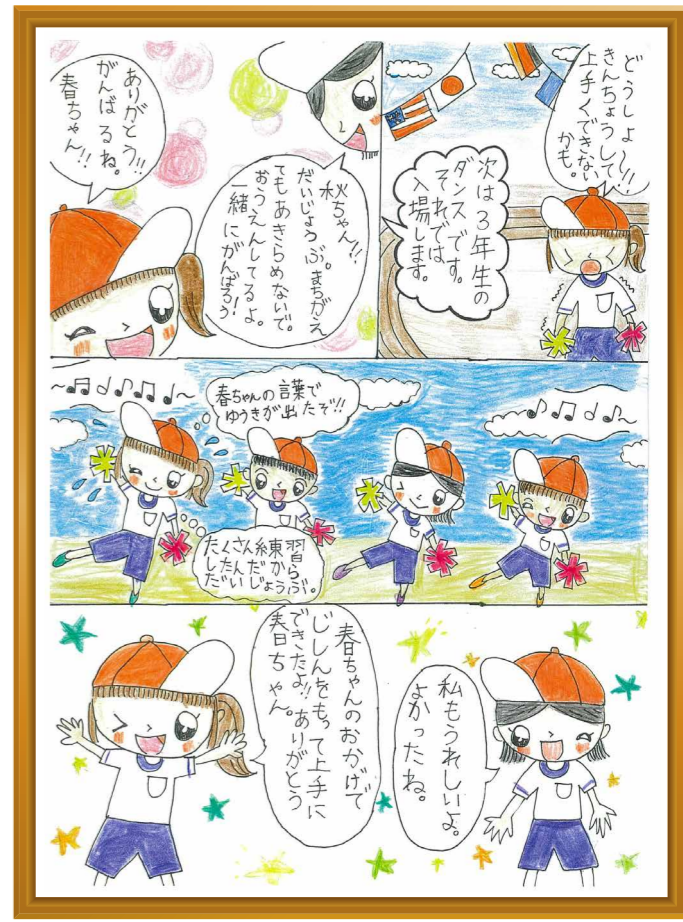 どうしよ〜!!
きんちょうして
上手くできない
かも。
次は3年生の
ダンスです。
それでは
入場します。
秋ちゃん!!
だいじょうぶ。まちがえ
てもあきらめないで。
おうえんしてるよ。
一緒にがんばろう!
ありがとう!!
がんばるね。
春ちゃん!!
春ちゃんの言葉で
ゆうきが出たぞ!!
たくさん練習
したんだから
だいじょうぶ。
私もうれしいよ。
よかったね。
春ちゃんのおかげで
じしんをもって上手に
できたよ!!ありがとう
春ちゃん。